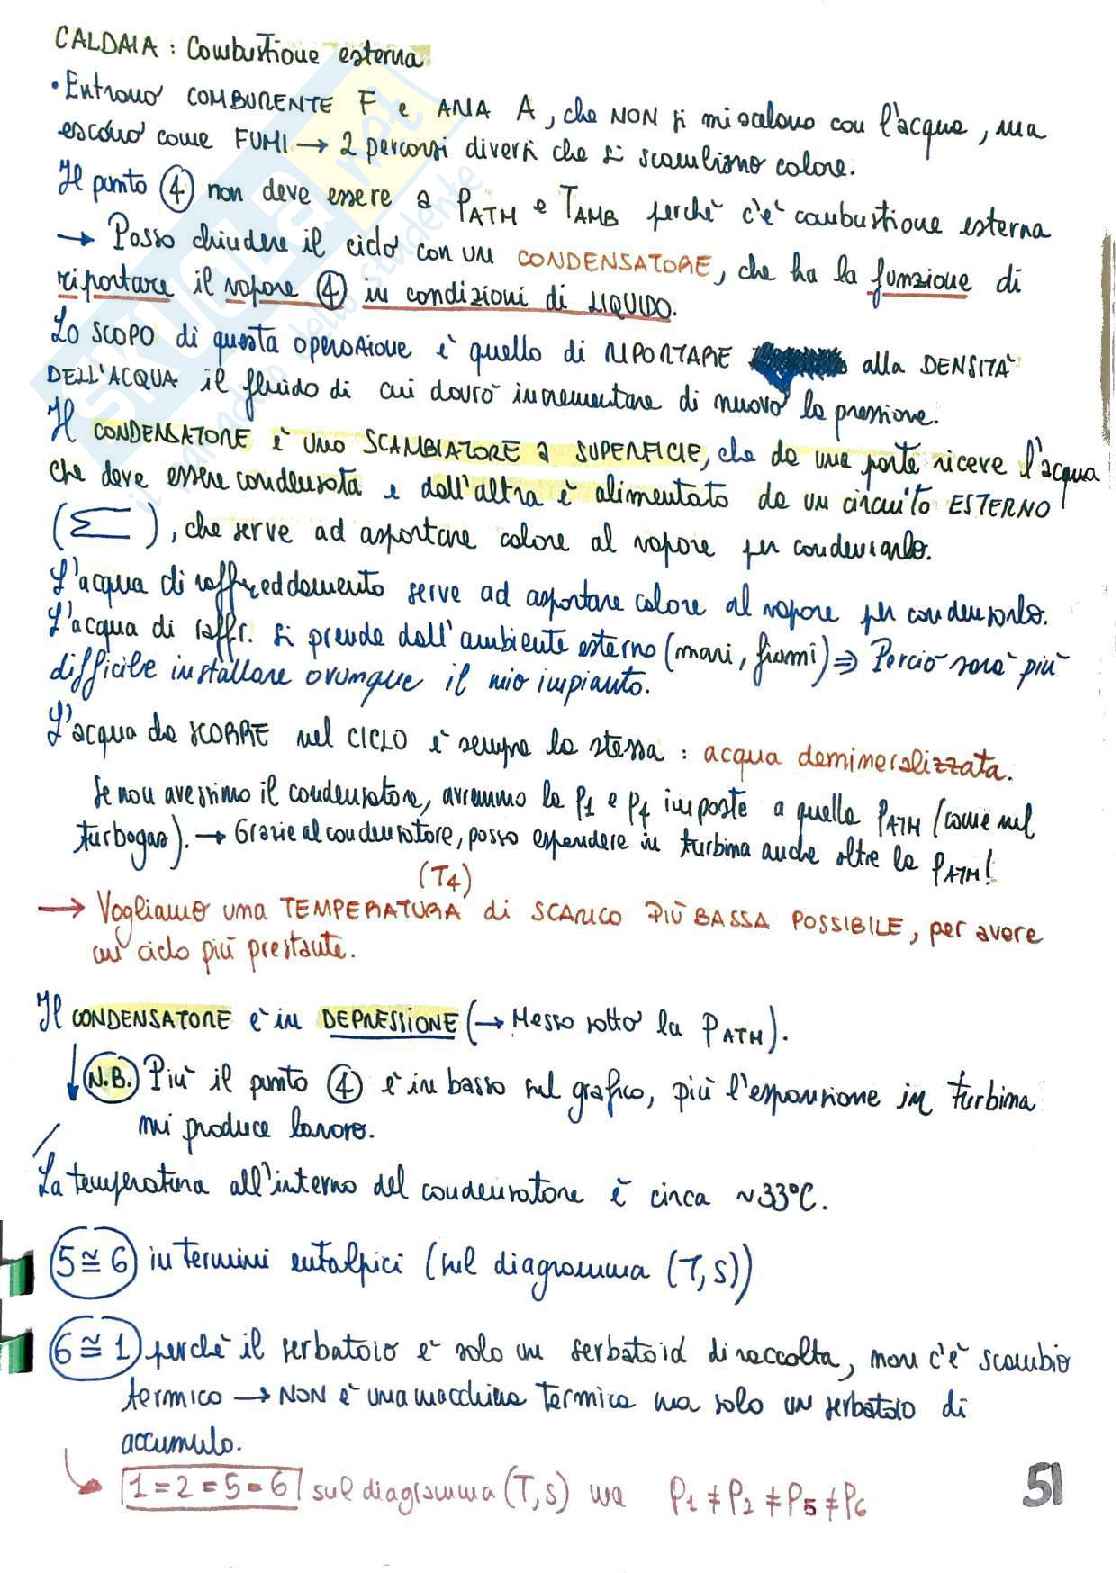 CALDAIA : Combustione esterna
• Entrano COMBURENTE F e ARIA A, che NON si miscelano con l'acqua, ma
escono come FUMI → 2 percorsi diversi che si scambiano calore.
Il punto ④ non deve essere a PATM e TAMB perchè c'è combustione esterna
→ Posso chiudere il ciclo con un CONDENSATORE, che ha la funzione di
riportare il vapore ④ in condizioni di LIQUIDO.
Lo SCOPO di questa operazione è quello di RIPORTARE alla DENSITÀ
DELL'ACQUA il fluido di cui dovrò incrementare di nuovo la pressione.
Il CONDENSATORE è uno SCAMBIATORE a SUPERFICIE, che da una parte riceve l'acqua
che deve essere condensata e dall'altra è alimentato da un circuito ESTERNO
( ), che serve ad asportare calore al vapore per condensarlo.
L'acqua di raffreddamento serve ad asportare calore al vapore per condensarlo.
L'acqua di raffr. si prende dall'ambiente esterno (mari, fiumi) ⇒ Perciò sarà più
difficile installare ovunque il mio impianto.
L'acqua da SCORRE nel CICLO è sempre la stessa : acqua demineralizzata.
Se non avessimo il condensatore, avremmo la P1 e P4 imposte a quella PATM (come nel
turbogas). → Grazie al condensatore, posso espandere in turbina anche oltre la PATM!
(T4)
→ Vogliamo una TEMPERATURA di SCARICO PIÙ BASSA POSSIBILE, per avere
un ciclo più prestante.
Il CONDENSATORE è in DEPRESSIONE (→ Messo sotto la PATM).
N.B. Più il punto ④ è in basso nel grafico, più l'espansione in turbina
mi produce lavoro.
La temperatura all'interno del condensatore è circa ~33°C.
5≅6 in termini entalpici (nel diagramma (T,S))
6≅1 perchè il serbatoio è solo un serbatoio di raccolta, non c'è scambio
termico → NON è una macchina termica ma solo un serbatoio di
accumulo.
↳ 1=2=5=6 sul diagramma (T,S) ma P1≠P2≠P5≠P6
51
skuola.net
il paradiso dello studente